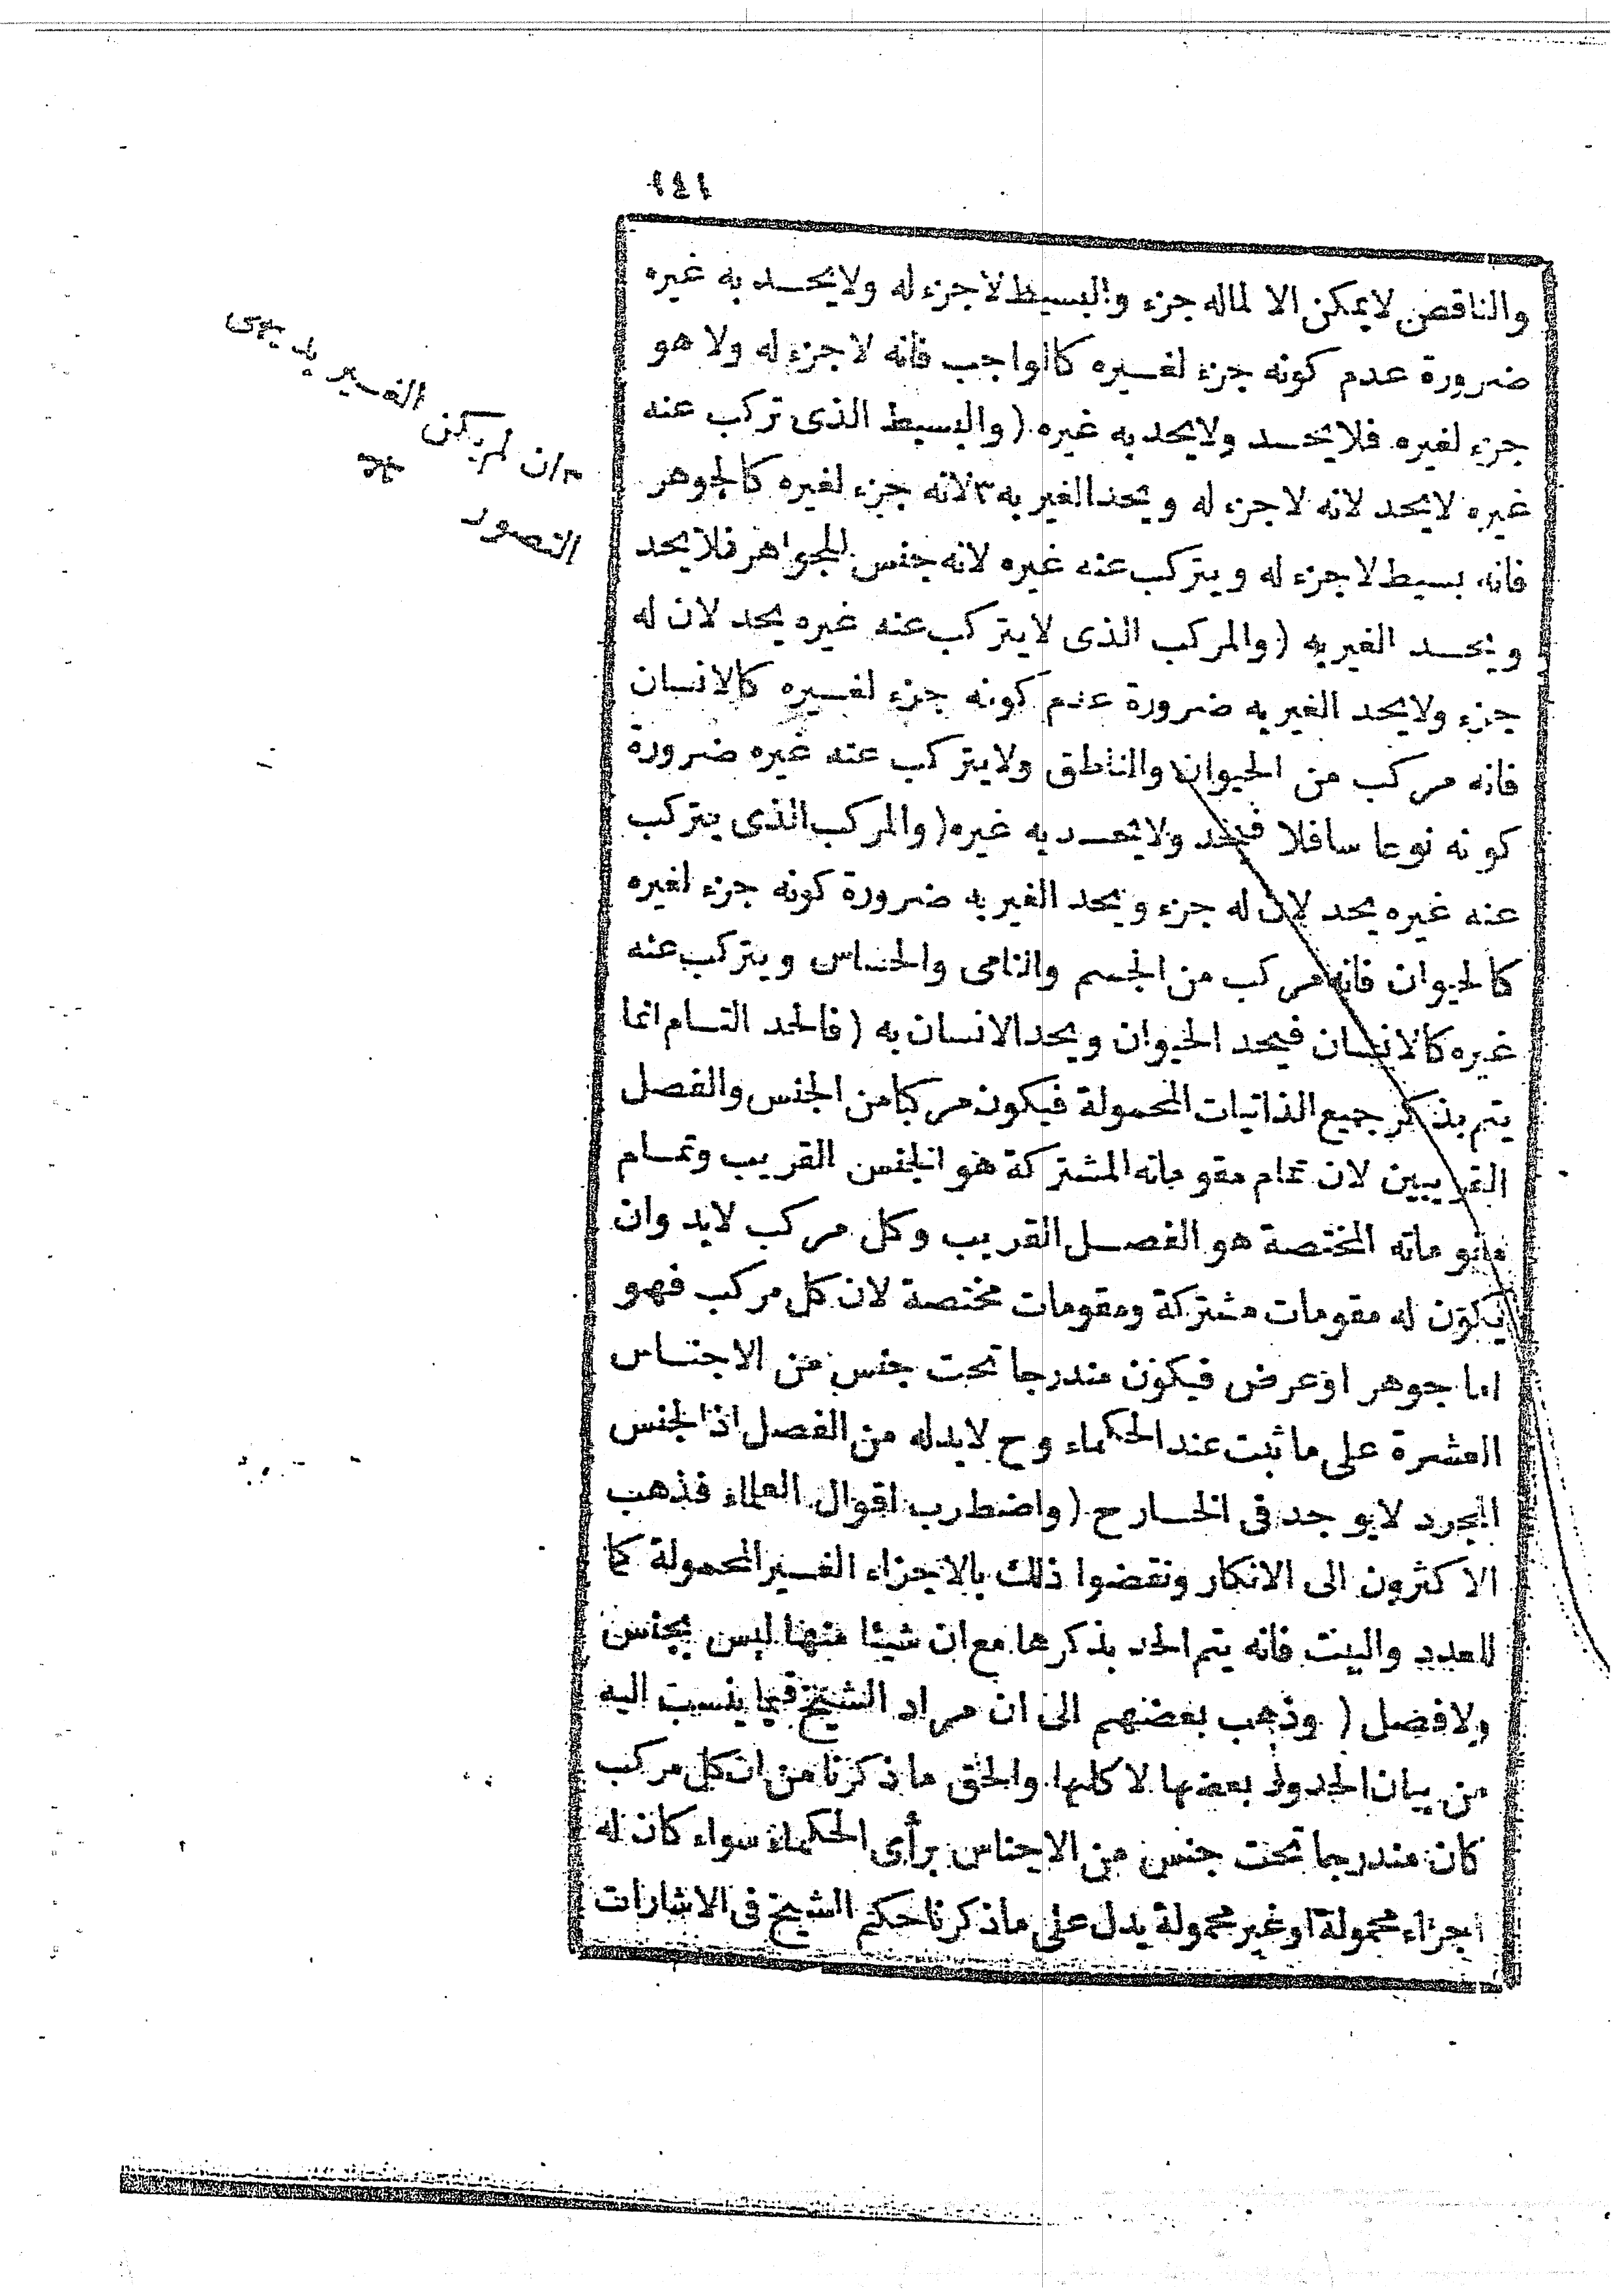 ١٤١
والناقص لايمكن الا لماله جزء والبسيط لاجزء له ولايحـد به غيره
ضرورة عدم كونه جزء لغـيره كالواجب فانه لاجزء له ولا هو
جزء لغيره فلايحـد ولايحد به غيره (والبسيط الذى تركب عنه
غيره لايحد لانه لاجزء له ويحد الغير به ٣ لانه جزء لغيره كالجوهر
فانه بسيط لاجزء له ويتركب عنه غيره لانه جنس للجواهر فلايحد
ويحـد الغير به (والمركب الذى لايتركب عنه غيره يحد لان له
جزء ولايحد الغير به ضرورة عدم كونه جزء لغـيره كالانسان
فانه مركب من الحيوان والناطق ولايتركب عنه غيره ضرورة
كونه نوعا سافلا فيحد ولايحـد به غيره (والمركب الذى يتركب
عنه غيره يحد لان له جزء ويحد الغير به ضرورة كونه جزء لغيره
كالحيوان فانه مركب من الجسم والنامى والحساس ويتركب عنه
غيره كالانسان فيحد الحيوان ويحد الانسان به (فالحد التـام انما
يتم بذكر جميع الذاتيات المحمولة فيكون مركبا من الجنس والفصل
القريبين لان تمام مقوماته المشتركة هو الجنس القريب وتمـام
مقوماته المختصة هو الفصـل القريب وكل مركب لابد وان
يكون له مقومات مشتركة ومقومات مختصة لان كل مركب فهو
اما جوهر اوعرض فيكون مندرجا تحت جنس من الاجنـاس
العشرة على ماثبت عند الحكماء وح لابدله من الفصل اذ الجنس
المجرد لايوجد فى الخـارح (واضطرب اقوال العلماء فذهب
الاكثرون الى الانكار ونقضوا ذلك بالاجزاء الغـير المحمولة كما
للعدد والبيت فانه يتم الحد بذكرها مع ان شيئا منها ليس بجنس
ولافصل ( وذهب بعضهم الى ان مراد الشيخ فيما ينسب اليه
من بيان الحدود بعضها لاكلها والحق ماذكرنا من ان كل مركب
كان مندرجا تحت جنس من الاجناس برأى الحكماء سواء كان له
اجزاء محمولة او غير محمولة يدل على ماذكرنا حكم الشيخ فى الاشارات
٣ ان لم يكن الغـير بديهى
التصور